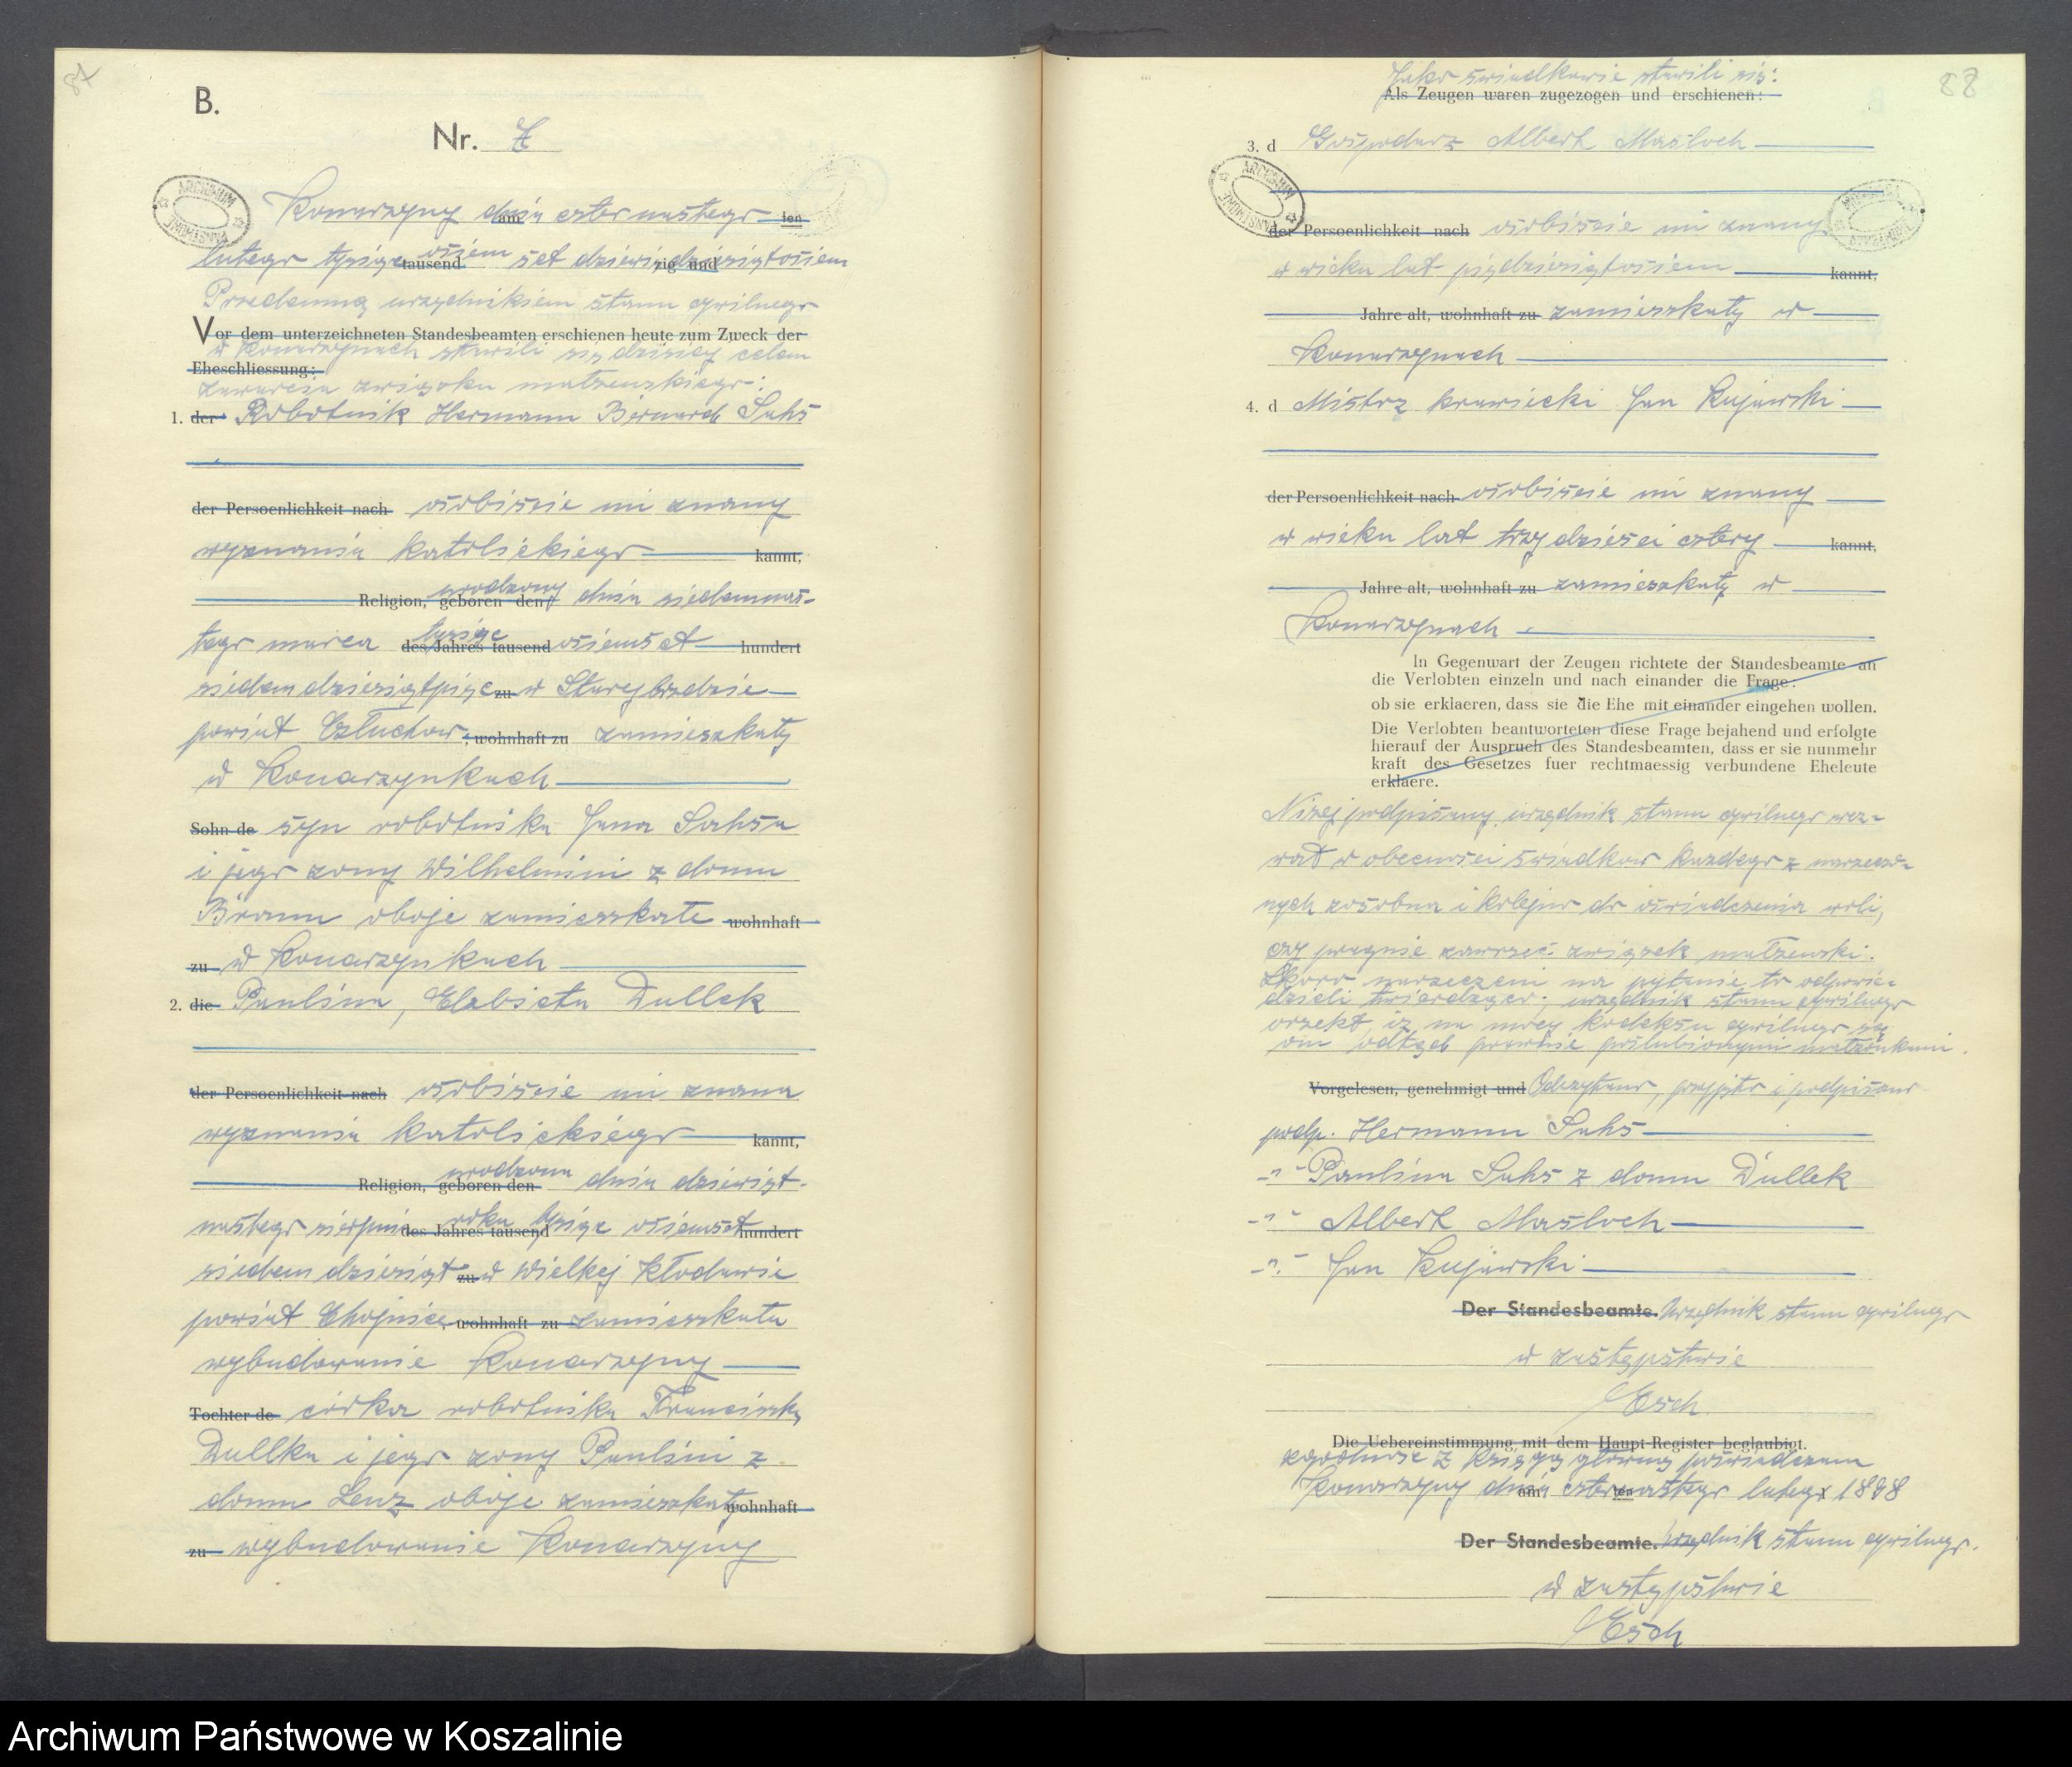 87
B.
Nr. 7
ARCHIWUM
Konarzyny dnia am czternastego ten
lutego tysiąc tausend osiem set dziewięćdziesiątosiem zig und
Przedemną urzędnikiem stanu cywilnego
Vor dem unterzeichneten Standesbeamten erschienen heute zum Zweck der
w Konarzynach stawili się dzisiaj celem
Eheschliessung:
zawarcia związku małżenskiego:
1. der Robotnik Hermann Bernard Sahs
der Persoenlichkeit nach osobiscie mi znany
wyznania katolickiego kannt,
Religion, geboren den urodzony dnia siedemnas-
tego marca des Jahres tausend tysiąc osiemset hundert
siedemdziesiątpięc zu w Starejbrdzie
powiat Człuchow, wohnhaft zu zamieszkały
w Konarzynkach
Sohn de syn robotnika Jana Sahsa
i jego zony Wilhelmini z domu
Braun oboje zamieszkate wohnhaft
zu w Konarzynkach
2. die Paulina, Elzbieta Dullek
der Persoenlichkeit nach osobiscie mi znana
wyznania katolickiego kannt,
Religion, geboren den urodzona dnia dziewięt-
nastego sierpnia des Jahres tausend roku tysiąc osiemset hundert
siedemdziesiąt zu w Wielkej Kłodawie
powiat Chojnice, wohnhaft zu zamieszkata
wybudowanie Konarzyny
Tochter de córka robotnika Franciszka
Dullka i jego zony Paulini z
domu Lenz oboje zamieszkaty wohnhaft
zu wybudowanie Konarzyny
88
Jako świadkowie stawili się:
Als Zeugen waren zugezogen und erschienen:
3. d Gospodarz Albert Masloch
ARCHIWUM
der Persoenlichkeit nach osobiscie mi znany
w wieku lat piędziesiątosiem kannt,
Jahre alt, wohnhaft zu zamieszkaty w
Konarzynach
4. d Mistrz krawiecki Jan Kujawski
der Persoenlichkeit nach osobiscie mi znany
w wieku lat trzydziesci cztery kannt,
Jahre alt, wohnhaft zu zamieszkaty w
Konarzynach
In Gegenwart der Zeugen richtete der Standesbeamte an
die Verlobten einzeln und nach einander die Frage:
ob sie erklaeren, dass sie die Ehe mit einander eingehen wollen.
Die Verlobten beantworteten diese Frage bejahend und erfolgte
hierauf der Auspruch des Standesbeamten, dass er sie nunmehr
kraft des Gesetzes fuer rechtmaessig verbundene Eheleute
erklaere.
Nizej podpisany urzędnik stanu cywilnego wez-
wat w obecnosci swiadkow kazdego z narzeczo-
nych zosobna i kolejno do oswiadczenia woli,
czy pragnie zawrzeć związek matzenski.
Skoro narzeczeni na pytanie to odpowie-
dzieli twierdząco, urzędnik stanu cywilnego
orzekt, iz na mocy kodeksu cywilnego są
oni odtąd prawnie poslubionymi matzonkami.
Vorgelesen, genehmigt und Odczytano, przyjęto i podpisano
podp. Hermann Sahs
-"- Paulina Sahs z domu Dullek
-"- Albert Masloch
-"- Jan Kujawski
Der Standesbeamte. Urzędnik stanu cywilnego
w zastępstwie
Esch
Die Uebereinstimmung mit dem Haupt-Register beglaubigt.
zgodnosc z księgą główną poświadczam
Konarzyny dnia am czternastego ten lutego 1898
Der Standesbeamte. Urzędnik stanu cywilnego.
w zastępstwie
Esch
Archiwum Państwowe w Koszalinie